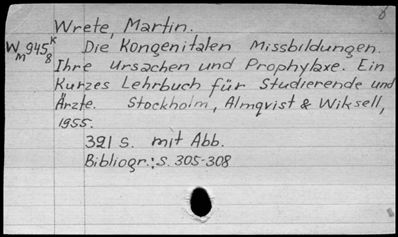 Wrete, Martin.
WM 945 K8 Die Kongenitalen Missbildungen.
Ihre Ursachen und Prophylaxe. Ein
Kurzes Lehrbuch für Studierende und
Ärzte. Stockholm, Almqvist & Wiksell,
1955.
321 s. mit Abb.
Bibliogr.: s. 305-308